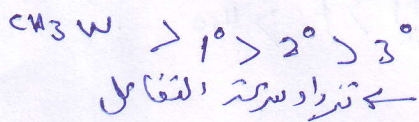 CH3 > 1° > 2° > 3°
تزداد سرعة التفاعل